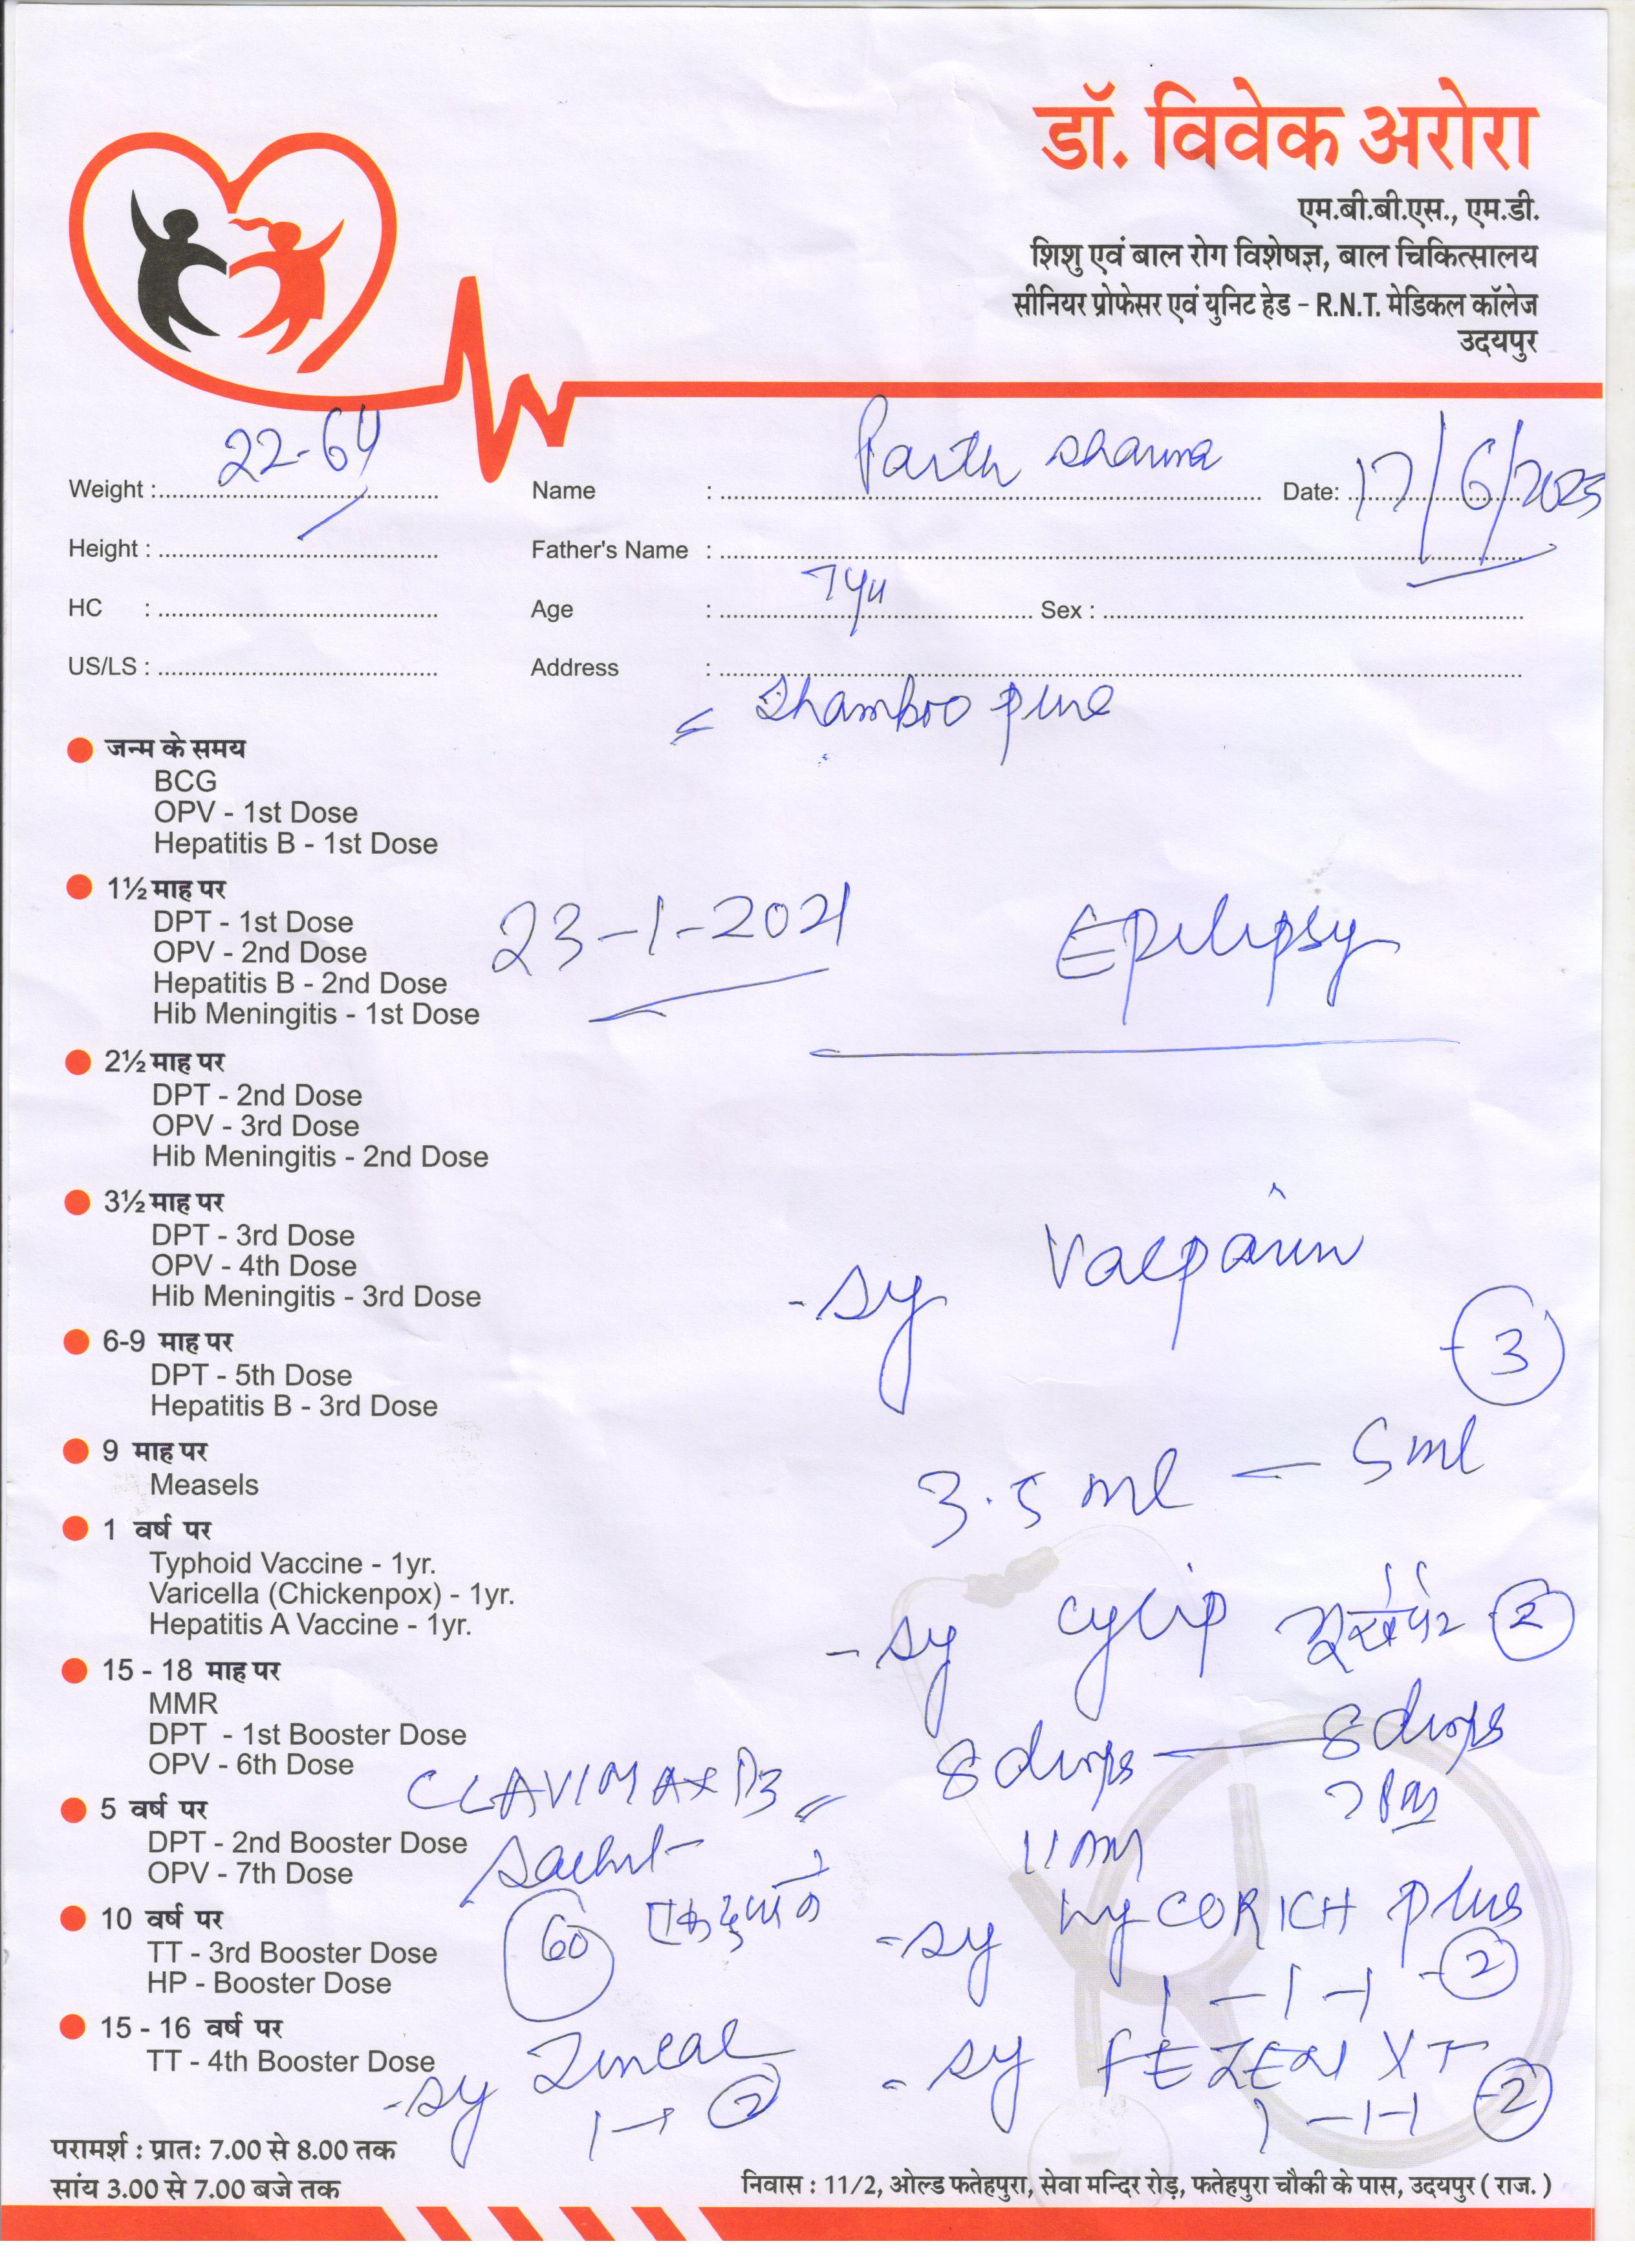 डॉ. विवेक अरोरा
एम.बी.बी.एस., एम.डी.
शिशु एवं बाल रोग विशेषज्ञ, बाल चिकित्सालय
सीनियर प्रोफेसर एवं युनिट हेड - R.N.T. मेडिकल कॉलेज
उदयपुर
Weight : 22-64 Name : Parth Sharma Date: 17/6/2025
Height : Father's Name :
HC : Age : 7 Sex :
US/LS : Address :
Shamboo pura
जन्म के समय
BCG
OPV - 1st Dose
Hepatitis B - 1st Dose
1½ माह पर
DPT - 1st Dose
OPV - 2nd Dose
Hepatitis B - 2nd Dose
Hib Meningitis - 1st Dose
23-1-2021 Epilepsy
2½ माह पर
DPT - 2nd Dose
OPV - 3rd Dose
Hib Meningitis - 2nd Dose
3½ माह पर
DPT - 3rd Dose
OPV - 4th Dose
Hib Meningitis - 3rd Dose
6-9 माह पर
DPT - 5th Dose
Hepatitis B - 3rd Dose
9 माह पर
Measels
1 वर्ष पर
Typhoid Vaccine - 1yr.
Varicella (Chickenpox) - 1yr.
Hepatitis A Vaccine - 1yr.
15 - 18 माह पर
MMR
DPT - 1st Booster Dose
OPV - 6th Dose
5 वर्ष पर
DPT - 2nd Booster Dose
OPV - 7th Dose
10 वर्ष पर
TT - 3rd Booster Dose
HP - Booster Dose
15 - 16 वर्ष पर
TT - 4th Booster Dose
- sy Valparin
- 3
3.5 ml — 5 ml
- sy cyclip भूखे पेट 2
8 drops — 8 drops
11 AM 7 PM
CLAVIMAX D3
Sachet
60
- sy hyCORICH plus
1 - 1 - 1 - 2
- sy FEZEN XT
1 - 1 - 1 2
- sy Zincal
2
परामर्श : प्रातः 7.00 से 8.00 तक
सांय 3.00 से 7.00 बजे तक
निवास : 11/2, ओल्ड फतेहपुरा, सेवा मन्दिर रोड़, फतेहपुरा चौकी के पास, उदयपुर ( राज. )